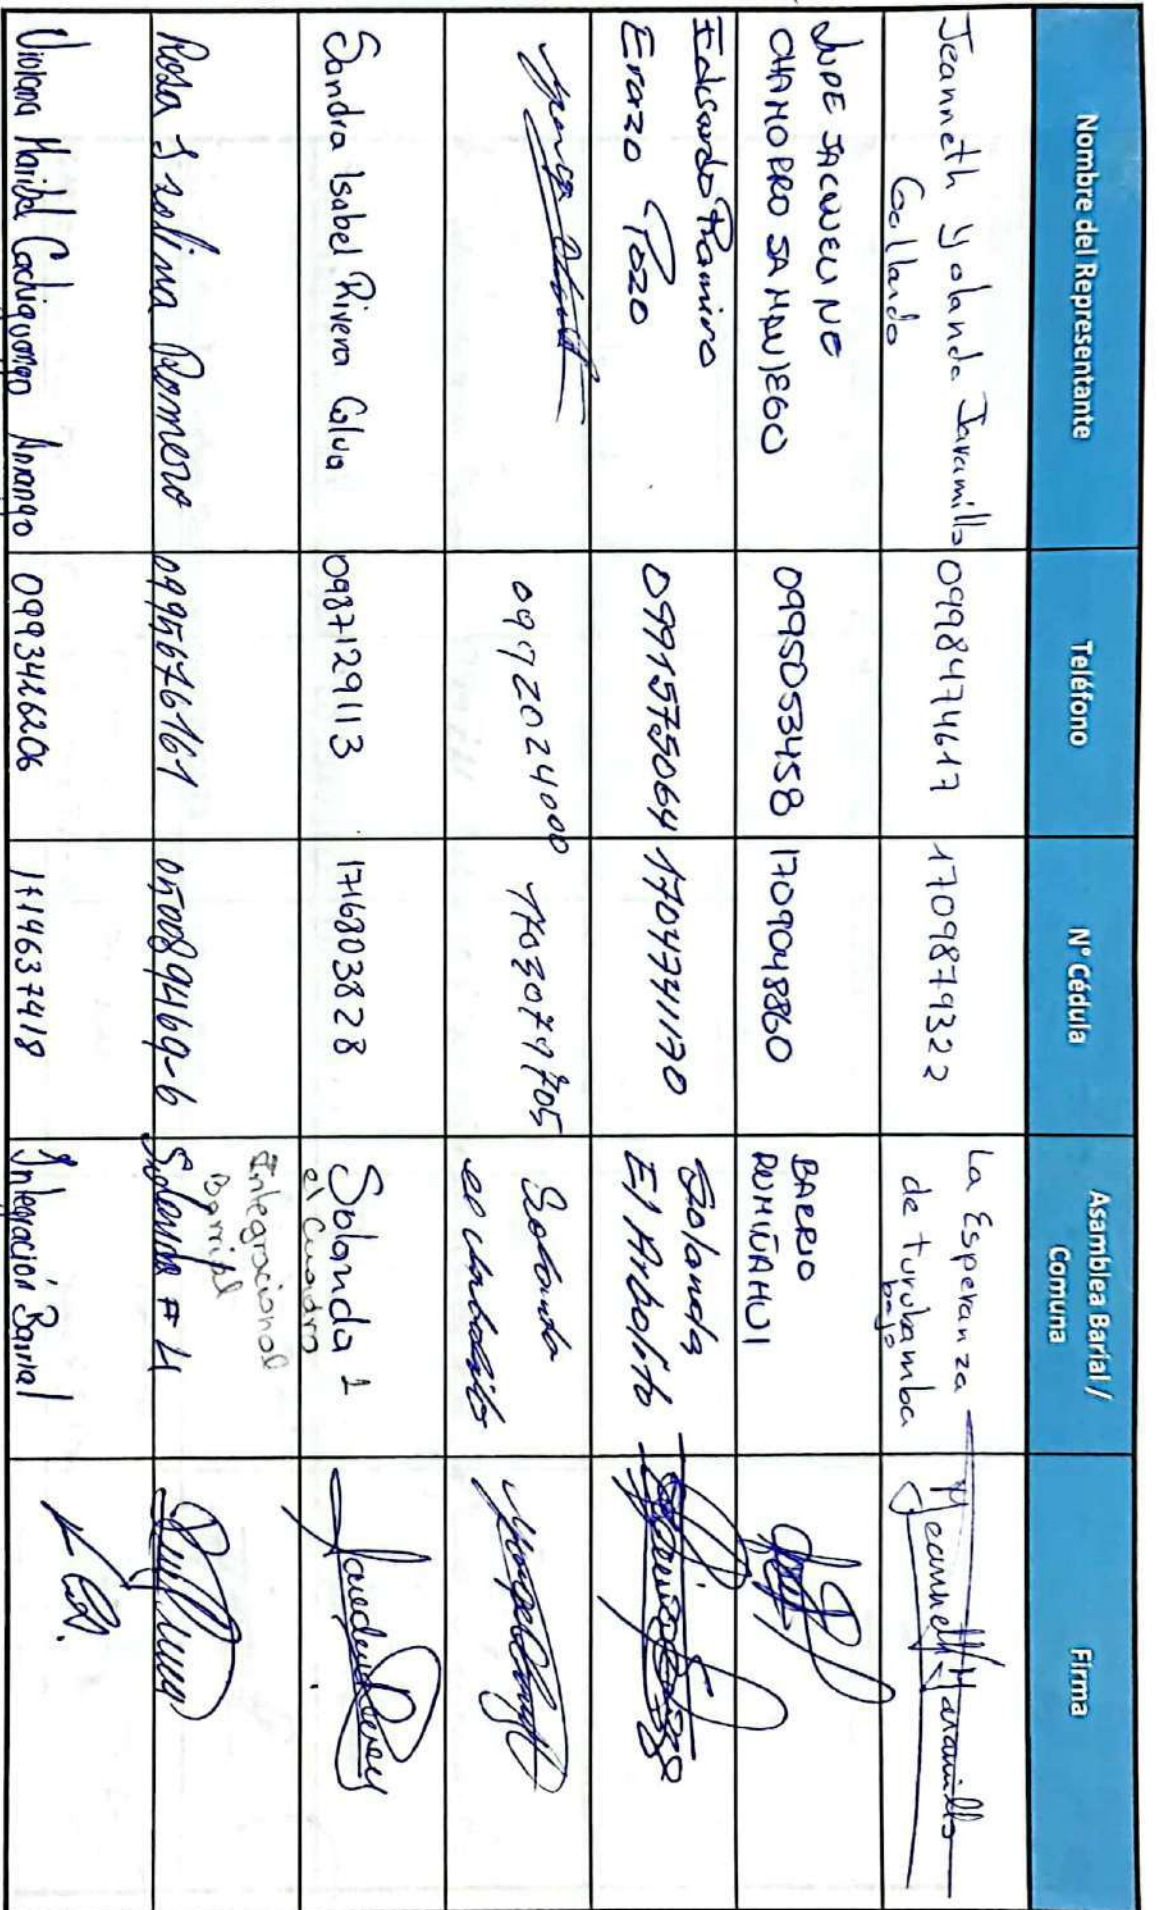 Nombre del Representante
Teléfono
N° Cédula
Asamblea Barial /
Comuna
Firma
Jeanneth Yolanda Jaramillo
Gallardo
0998474617
1709879322
La Esperanza
de turubamba
bajo
Jeanneth Jaramillo
JACQUELINE
CHAMORRO SAMANIEGO
0995053458
1709048860
BARRIO
RUMIÑAHUI
Ramiro
Erazo Pozo
0991575064
1704741170
Solanda
El Arbolito
0992024000
Solanda
Sandra Isabel Rivera Calva
0987129113
1716803828
Solanda 1
el Cuadro
Integracional
Barrial
Rosa Izolina Romero
0995676161
050089469-6
Solanda # 4
Maribel Cachiguango Arrango
0993426206
1714637418
Integración Barrial